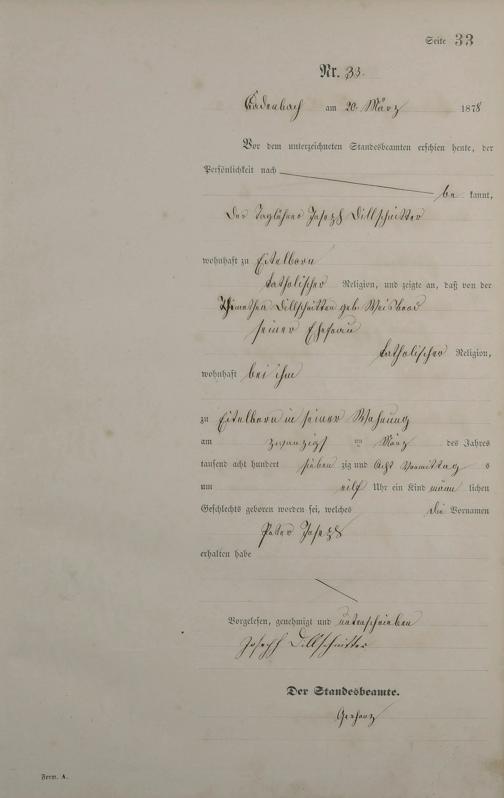 Seite 33
Nr. 33.
Cadenbach am 20. März 1878
Vor dem unterzeichneten Standesbeamten erschien heute, der
Persönlichkeit nach
be kannt,
der Taglöhner Joseph Dillschnitter
wohnhaft zu Eitelborn
katholischer Religion, und zeigte an, daß von der
Dillschnitter geb
seiner Ehefrau
katholischer Religion,
wohnhaft bei ihm
zu Eitelborn in seiner Wohnung
am zwanzigst en März des Jahres
tausend acht hundert sieben zig und Acht Vormittag s
um eilf Uhr ein Kind männ lichen
Geschlechts geboren worden sei, welches die Vornamen
Peter Joseph
erhalten habe
Vorgelesen, genehmigt und unterschrieben
Joseph Dillschnitter
Der Standesbeamte.
Form. A.